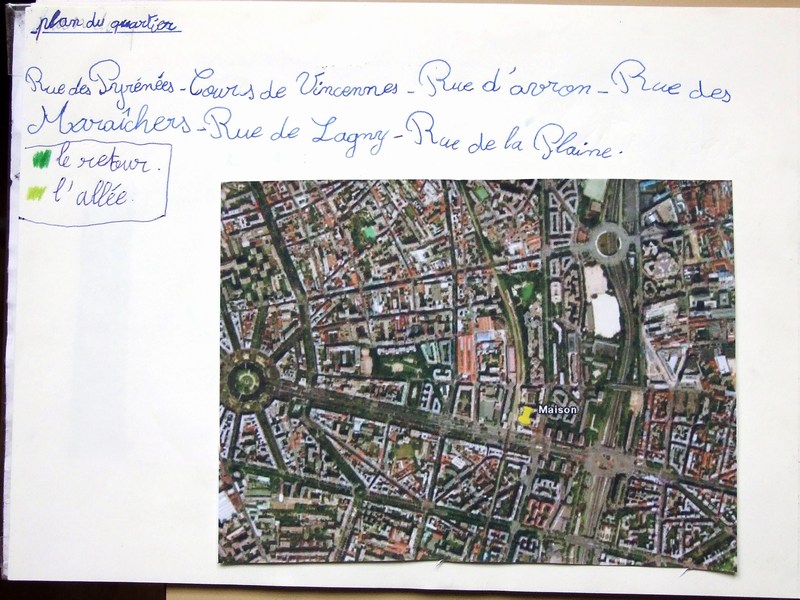 plan du quartier
Rue des Pyrénées - Cours de Vincennes - Rue d'avron - Rue des
Maraîchers - Rue de Lagny - Rue de la Plaine.
le retour.
l'allée.
Maison